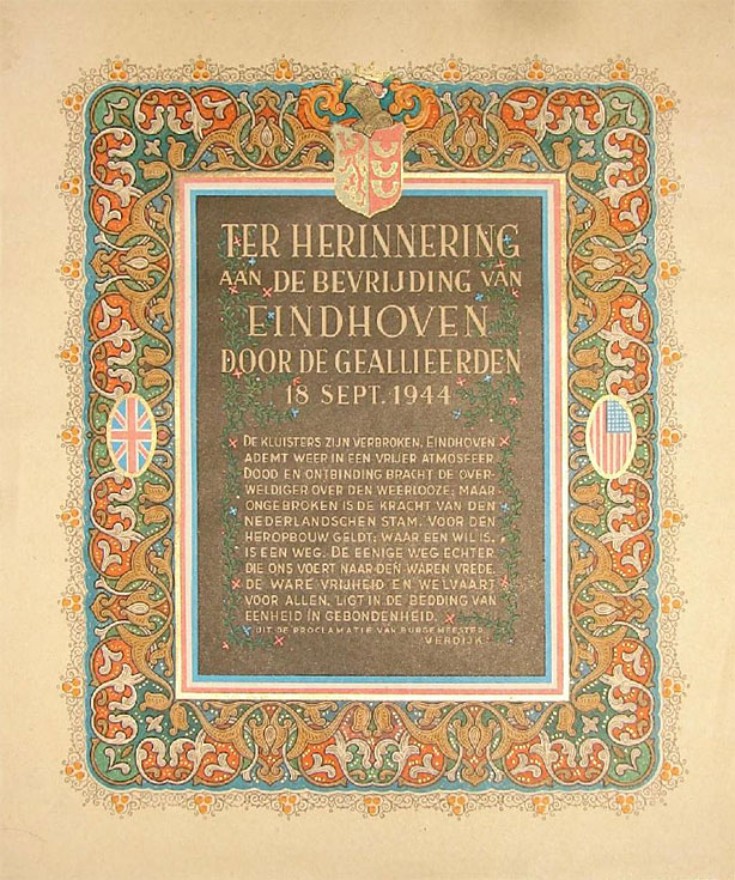 TER HERINNERING
AAN DE BEVRIJDING VAN
EINDHOVEN
DOOR DE GEALLIEERDEN
18 SEPT. 1944
DE KLUISTERS ZIJN VERBROKEN. EINDHOVEN
ADEMT WEER IN EEN VRIJER ATMOSFEER.
DOOD EN ONTBINDING BRACHT DE OVER-
WELDIGER OVER DEN WEERLOOZE; MAAR
ONGEBROKEN IS DE KRACHT VAN DEN
NEDERLANDSCHEN STAM. VOOR DEN
HEROPBOUW GELDT: WAAR EEN WIL IS,
IS EEN WEG. DE EENIGE WEG ECHTER,
DIE ONS VOERT NAAR DEN WAREN VREDE,
DE WARE VRIJHEID EN WELVAART
VOOR ALLEN, LIGT IN DE BEDDING VAN
EENHEID IN GEBONDENHEID.
UIT DE PROCLAMATIE VAN BURGEMEESTER
VERDIJK